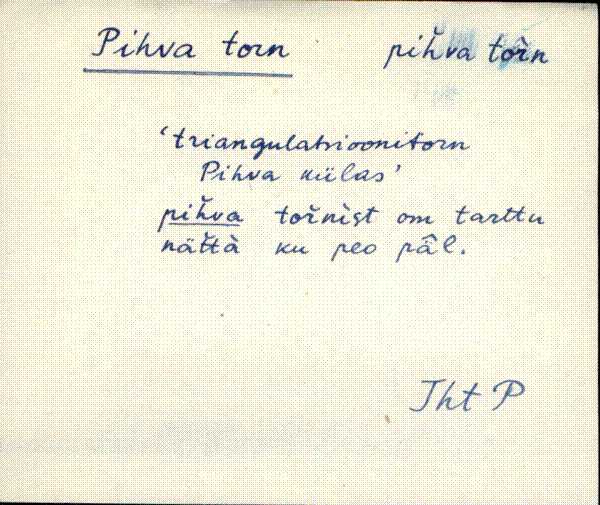 Pihva torn pih̆va tor̆n
‘triangulatsioonitorn
Pihva külas’
pih̆va tor̆nìst om tarttu
nät̆tà ku peo pǟ̂l.
Tht P